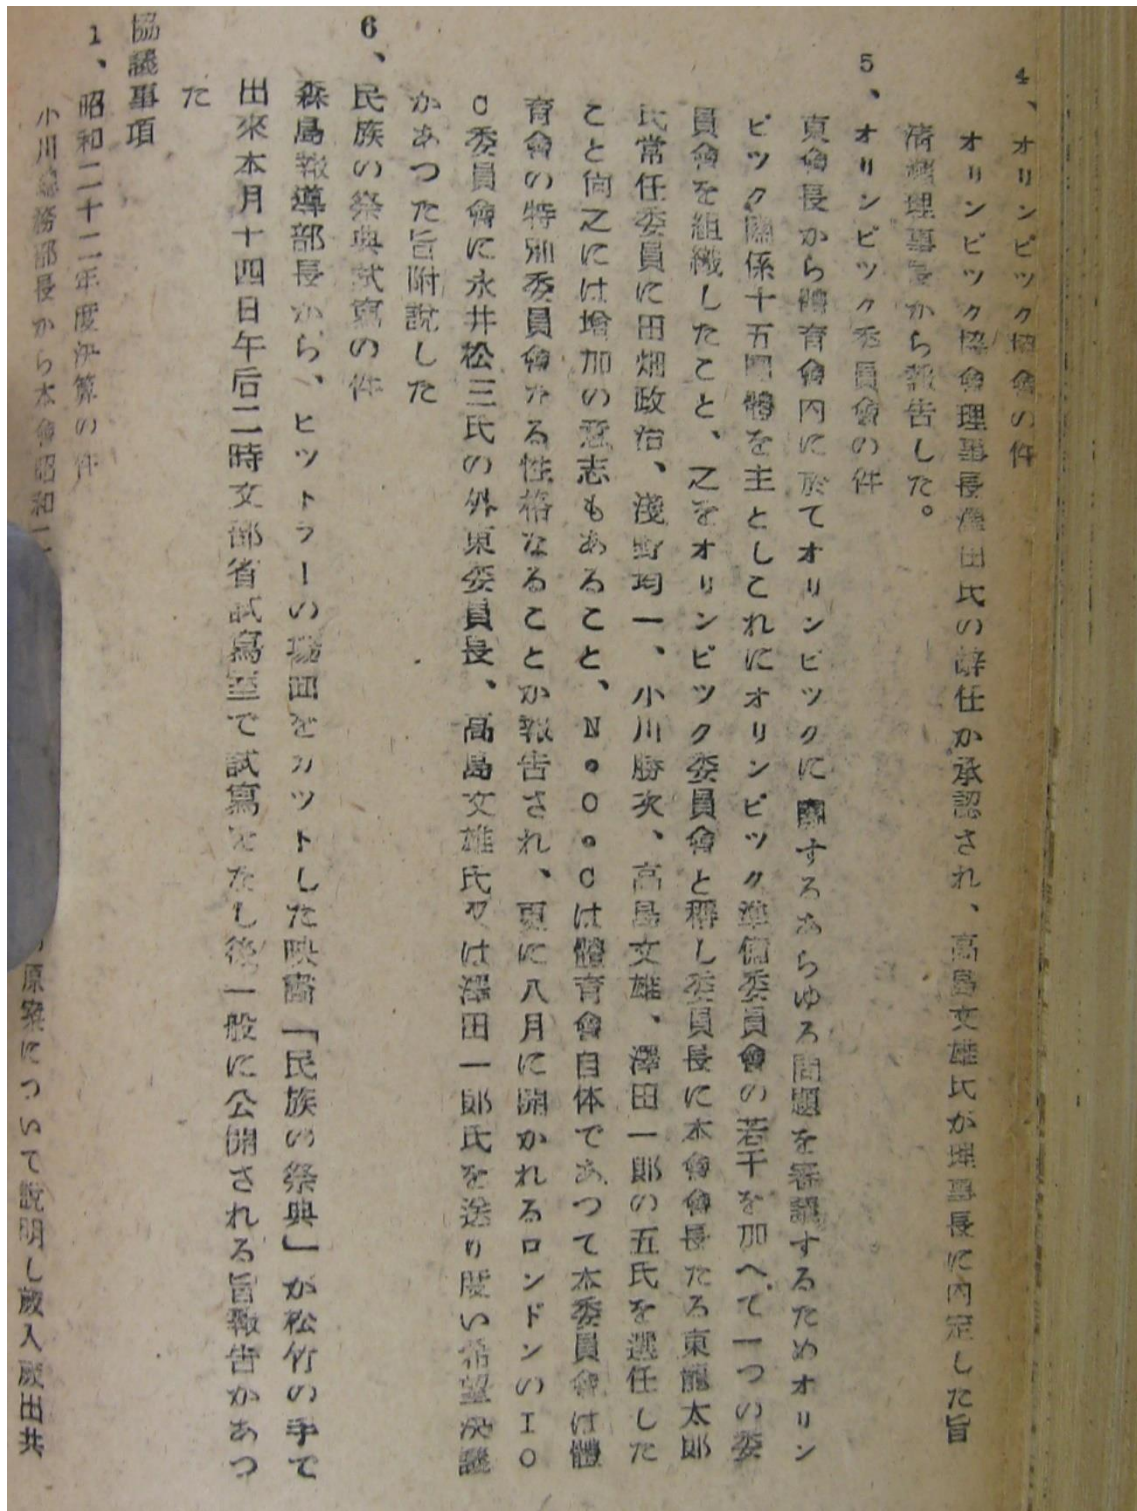 4、オリンピック協會の件
オリンピック協會理事長 田氏の辞任か承認され、高島文雄氏が理事長に内定した旨
清 理事長から報告した。
5、オリンピック委員會の件
東會長から體育會内に於てオリンピックに關するあらゆる問題を審議するためオリン
ピック關係十五團體を主としこれにオリンピック準備委員會の若干を加へて一つの委
員會を組織したこと、之をオリンピック委員會と稱し委員長に本會會長たる東龍太郎
氏常任委員に田畑政治、淺野均一、小川勝次、高島文雄、澤田一郎の五氏を選任した
こと尙之には增加の意志もあること、N・O・Cは體育會自体であつて本委員會は體
育會の特別委員會たる性格なることか報告され、更に八月に開かれるロンドンのIO
C委員會に永井松三氏の外東委員長、高島文雄氏又は澤田一郎氏を送り度い希望決議
かあつた旨附說した
6、民族の祭典試寫の件
森島報導部長から、ヒットラーの場面をカットした映畵「民族の祭典」が松竹の手で
出來本月十四日午后二時文部省試寫室で試寫をなし後一般に公開される旨報告かあつ
た
協議事項
1、昭和二十二年度決算の件
小川總務部長から本會昭和二 原案について說明し歲入歲出共